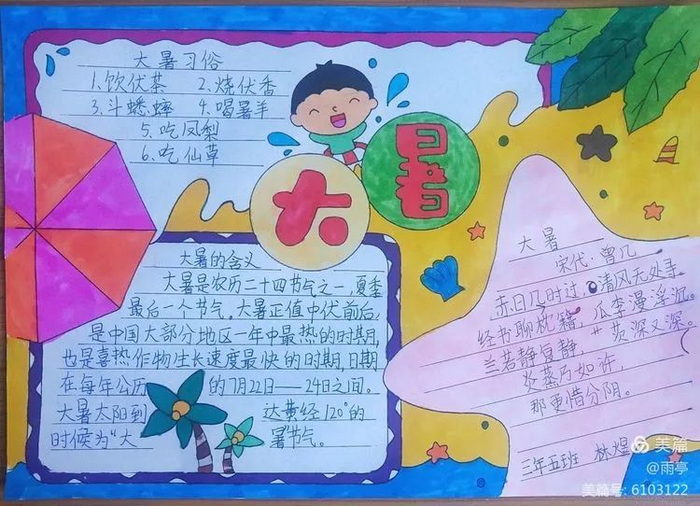 大暑习俗
1.饮伏茶 2.烧伏香
3.斗蟋蟀 4.喝暑羊
5.吃凤梨
6.吃仙草
大暑
大暑的含义
大暑是农历二十四节气之一,夏季
最后一个节气,大暑正值中伏前后,
是中国大部分地区一年中最热的时期,
也是喜热作物生长速度最快的时期,日期
在每年公历 的7月22日——24日之间。
大暑太阳到 达黄经120°的
时候为“大 暑”节气。
大暑
宋代·曾几
赤日几时过,清风无处寻。
经书聊枕籍,瓜李漫浮沉。
兰若静复静,茅茨深又深。
炎蒸乃如许,
那更惜分阴。
三年五班 林煜
美篇
@雨亭
美篇号: 6103122